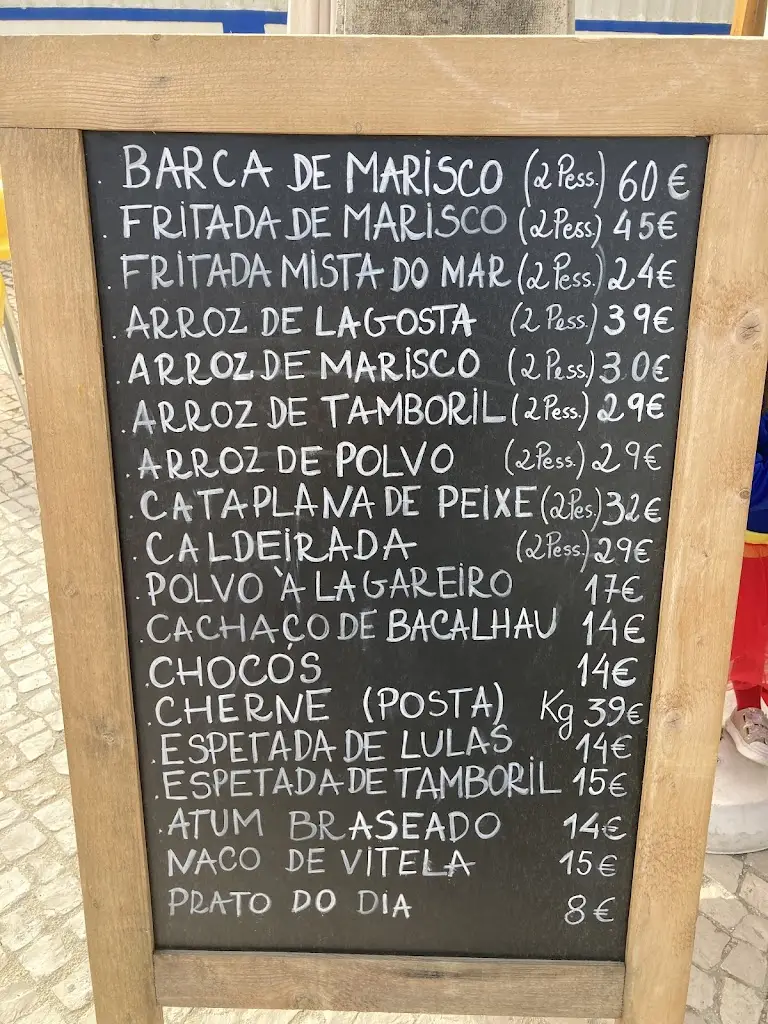 . BARCA DE MARISCO (2 Pess.) 60€
. FRITADA DE MARISCO (2 Pess.) 45€
. FRITADA MISTA DO MAR (2 Pess.) 24€
. ARROZ DE LAGOSTA (2 Pess.) 39€
. ARROZ DE MARISCO (2 Pess.) 30€
. ARROZ DE TAMBORIL (2 Pess.) 29€
. ARROZ DE POLVO (2 Pess.) 29€
. CATAPLANA DE PEIXE (2 Pes.) 32€
. CALDEIRADA (2 Pess.) 29€
. POLVO À LAGAREIRO 17€
. CACHAÇO DE BACALHAU 14€
. CHOCOS 14€
. CHERNE (POSTA) Kg 39€
. ESPETADA DE LULAS 14€
. ESPETADA DE TAMBORIL 15€
. ATUM BRASEADO 14€
. NACO DE VITELA 15€
. PRATO DO DIA 8€